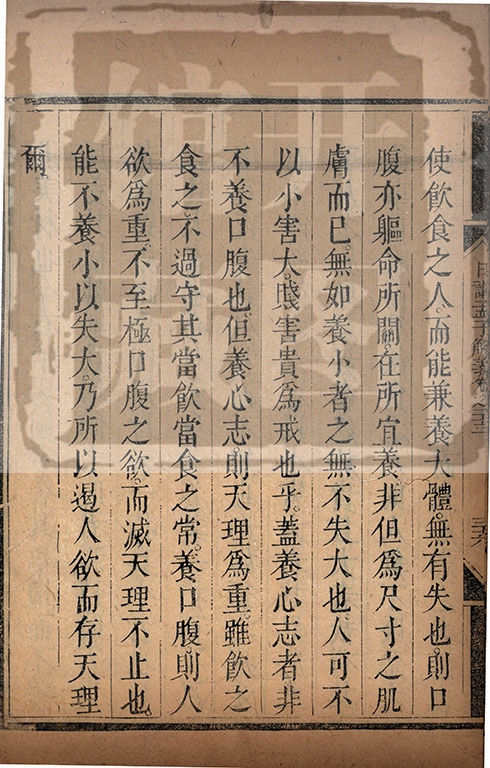 使飲食之人。而能兼養大體。無有失也。則口
腹亦軀命所關。在所宜養。非但爲尺寸之肌
膚而已。無如養小者之無不失大也。人可不
以小害大。賤害貴爲戒也乎。蓋養心志者。非
不養口腹也。但養心志則天理爲重。雖飲之
食之。不過守其當飲當食之常。養口腹。則人
欲爲重。不至極口腹之欲。而滅天理不止也。
能不養小以失大。乃所以遏人欲而存天理
爾
日講孟子解義卷之二十三
三六